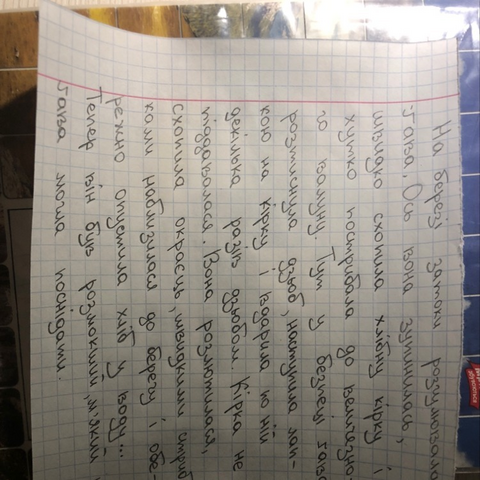 На березі затоки розгулювала
гага. Ось вона зупинилась,
швидко схопила хлібну кірку і
хутко пострибала до велетезно-
го валуну. Тут у безпеці гага
розтиснула дзьоб, наступила лап-
кою на кірку і вдарила по ній
декілька разів дзьобом. Кірка не
піддавалася. Вона розлютилася,
схопила окраєць, швидкими стриб
ками наблизилася до берегу і обе-
режно опустила хліб у воду...
Тепер він був розмокший, м'який і
гага могла поснідати.